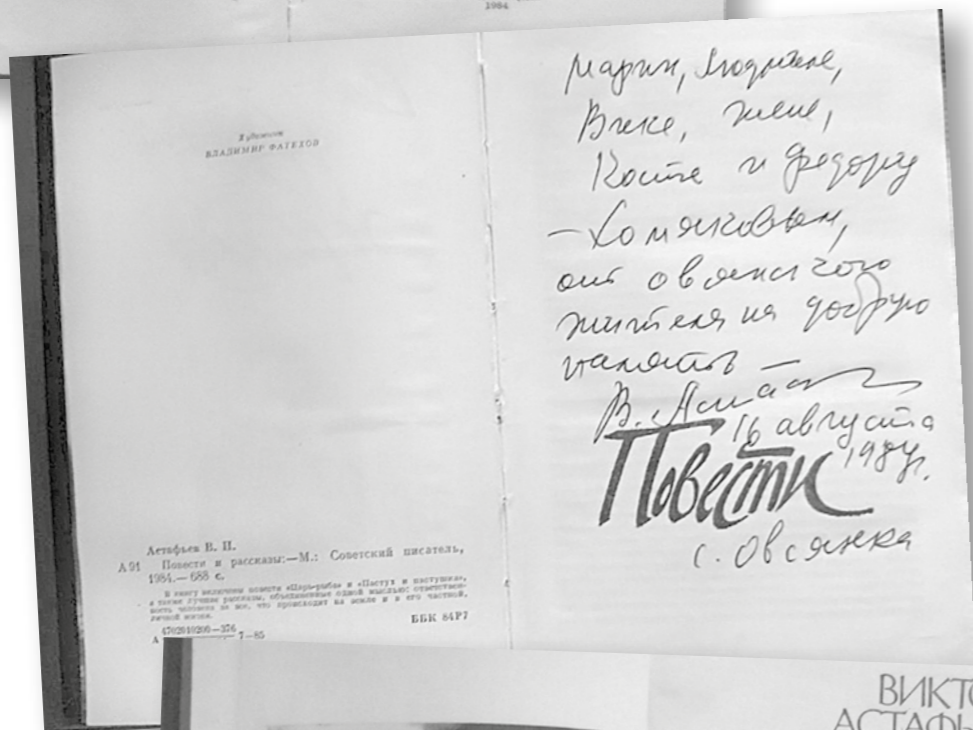 1984
Художник
ВЛАДИМИР ФАТЕХОВ
Астафьев В. П.
А 91 Повести и рассказы:—М.: Советский писатель,
1984.— 688 с.
В книгу включены повести «Царь-рыба» и «Пастух и пастушка»,
а также лучшие рассказы, объединенные одной мыслью: ответствен-
ность человека за все, что происходит на земле и в его частной,
личной жизни.
4702010200—376
А 7—85
ББК 84Р7
Марии, Людмиле,
Вике, Жене,
Косте и Федору
— Хомяковым,
от овсянского
жителя на добрую
память
В. Астаф
16 августа
1984г.
Повести
с. Овсянка
ВИКТО
АСТАФЬ